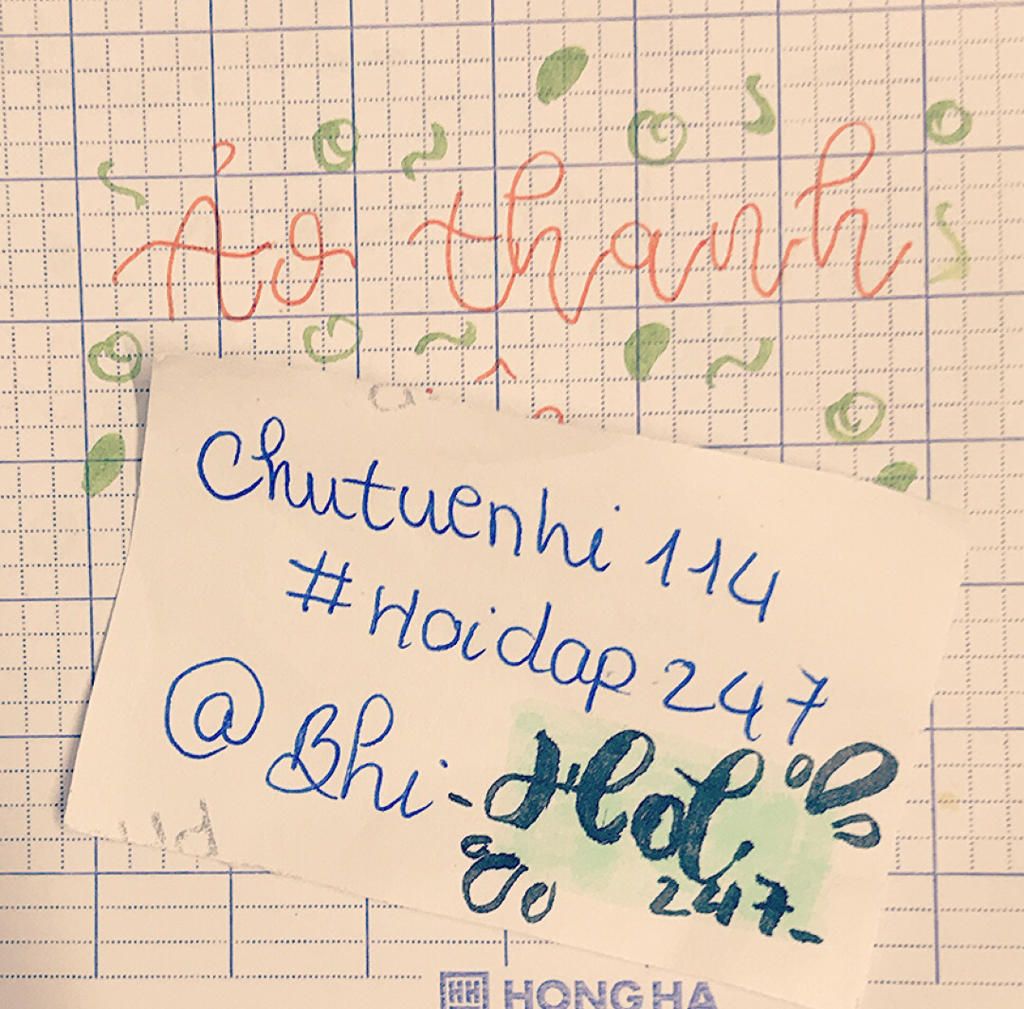 Ảo thanh
chutuenhi 114
#Hoidap 247
@Bhi-
247-
HH HONG HA